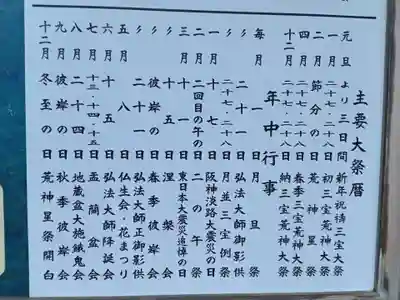 主要大祭暦
元旦より三日間 新年祝祷三宝大祭
一月 二十七・二十八日 初三宝荒神大祭
二月 節分の日 荒神星祭
四月 二十七・二十八日 春季三宝荒神大祭
十二月 二十七・二十八日 納三宝荒神大祭
年中行事
毎月 一日 月旦祭
〃 二十一日 弘法大師御影供
〃 二十七・二十八日 月並三宝例祭
一月 十七日 阪神淡路大震災の日
二月 二回目の午の日 二の午祭
三月 十一日 東日本大震災追悼の日
〃 十五日 涅槃会
〃 彼岸の日 春季彼岸会
〃 二十一日 弘法大師正御影供
五月 八日 仏生会・花まつり
六月 十五日 弘法大師降誕会
七月 十三・十四・十五日 盂蘭盆会
八月 二十四日 地蔵盆大施餓鬼会
九月 彼岸の日 秋季彼岸会
十二月 冬至の日 荒神星祭開白